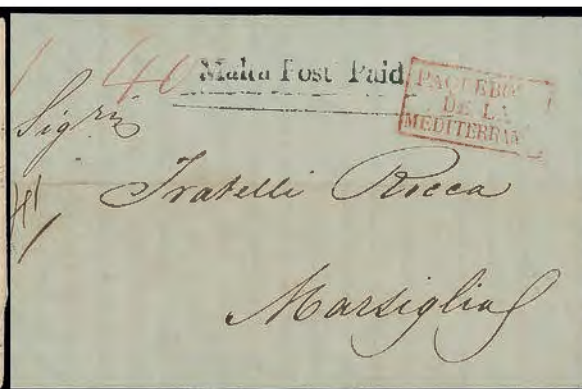 40 Malta Post Paid
PAQUEBO
DE LA
MEDITERRAN
Sigri
Fratelli Rocca
Marsiglia